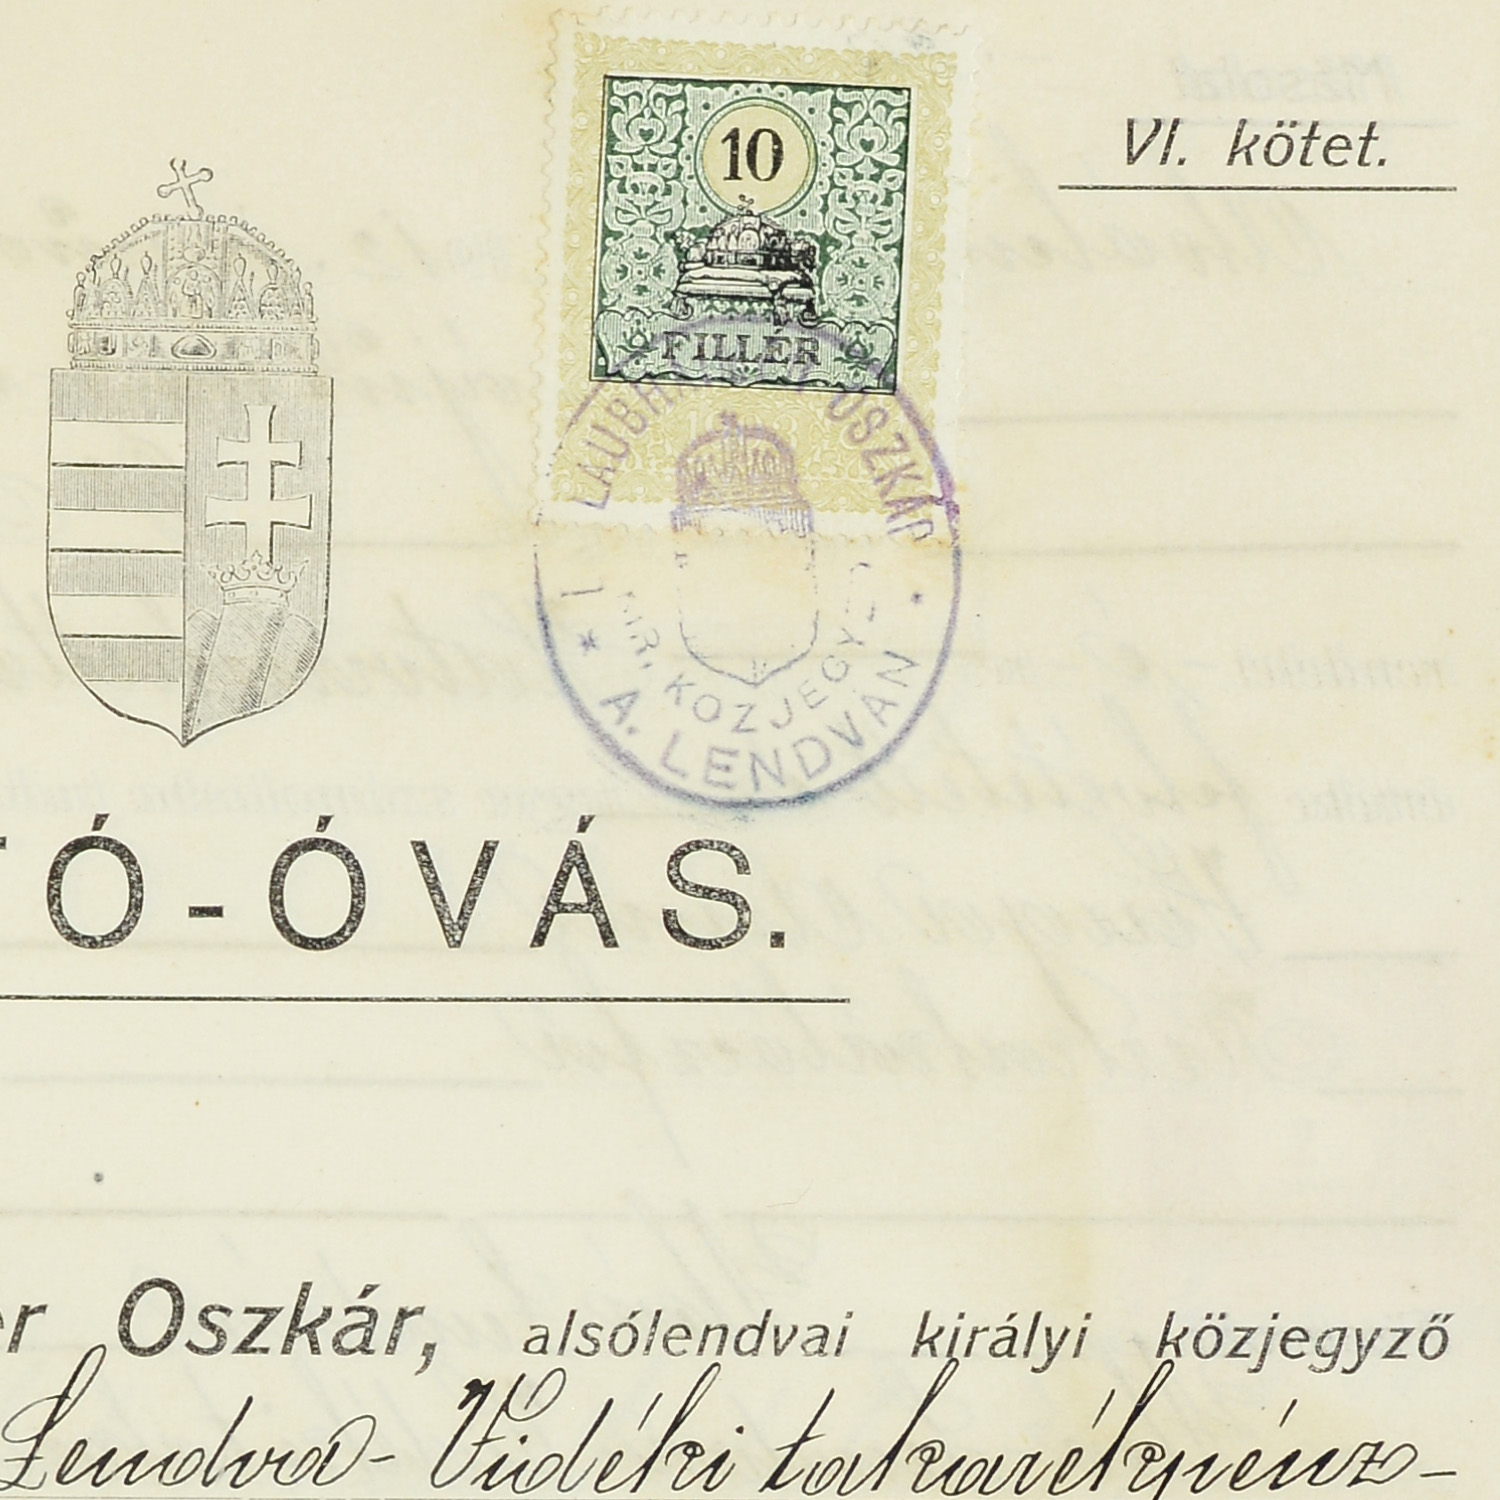 VI. kötet.
10
FILLÉR
OSZKÁR
KIR. KÖZJEGYZŐ
A. LENDVÁN
TÓ-ÓVÁS.
er Oszkár, alsólendvai királyi közjegyző
Lendva-Vidéki takarékpénz-